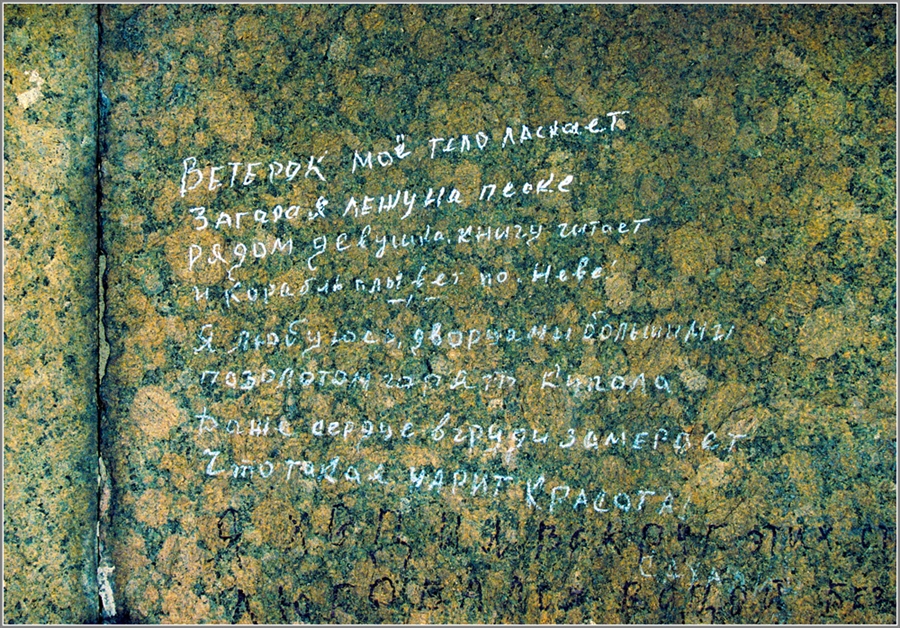 Ветерок моё тело ласкает
Загарая лежу на песке
Рядом девушка книгу читает
и корабль плывет по Неве!
Я любуюсь, дворцами большими
позолотой горят купола
Даже сердце в груди замерает
Что такая царит Красота!
Я
этих ст
Саха
любовались водой без